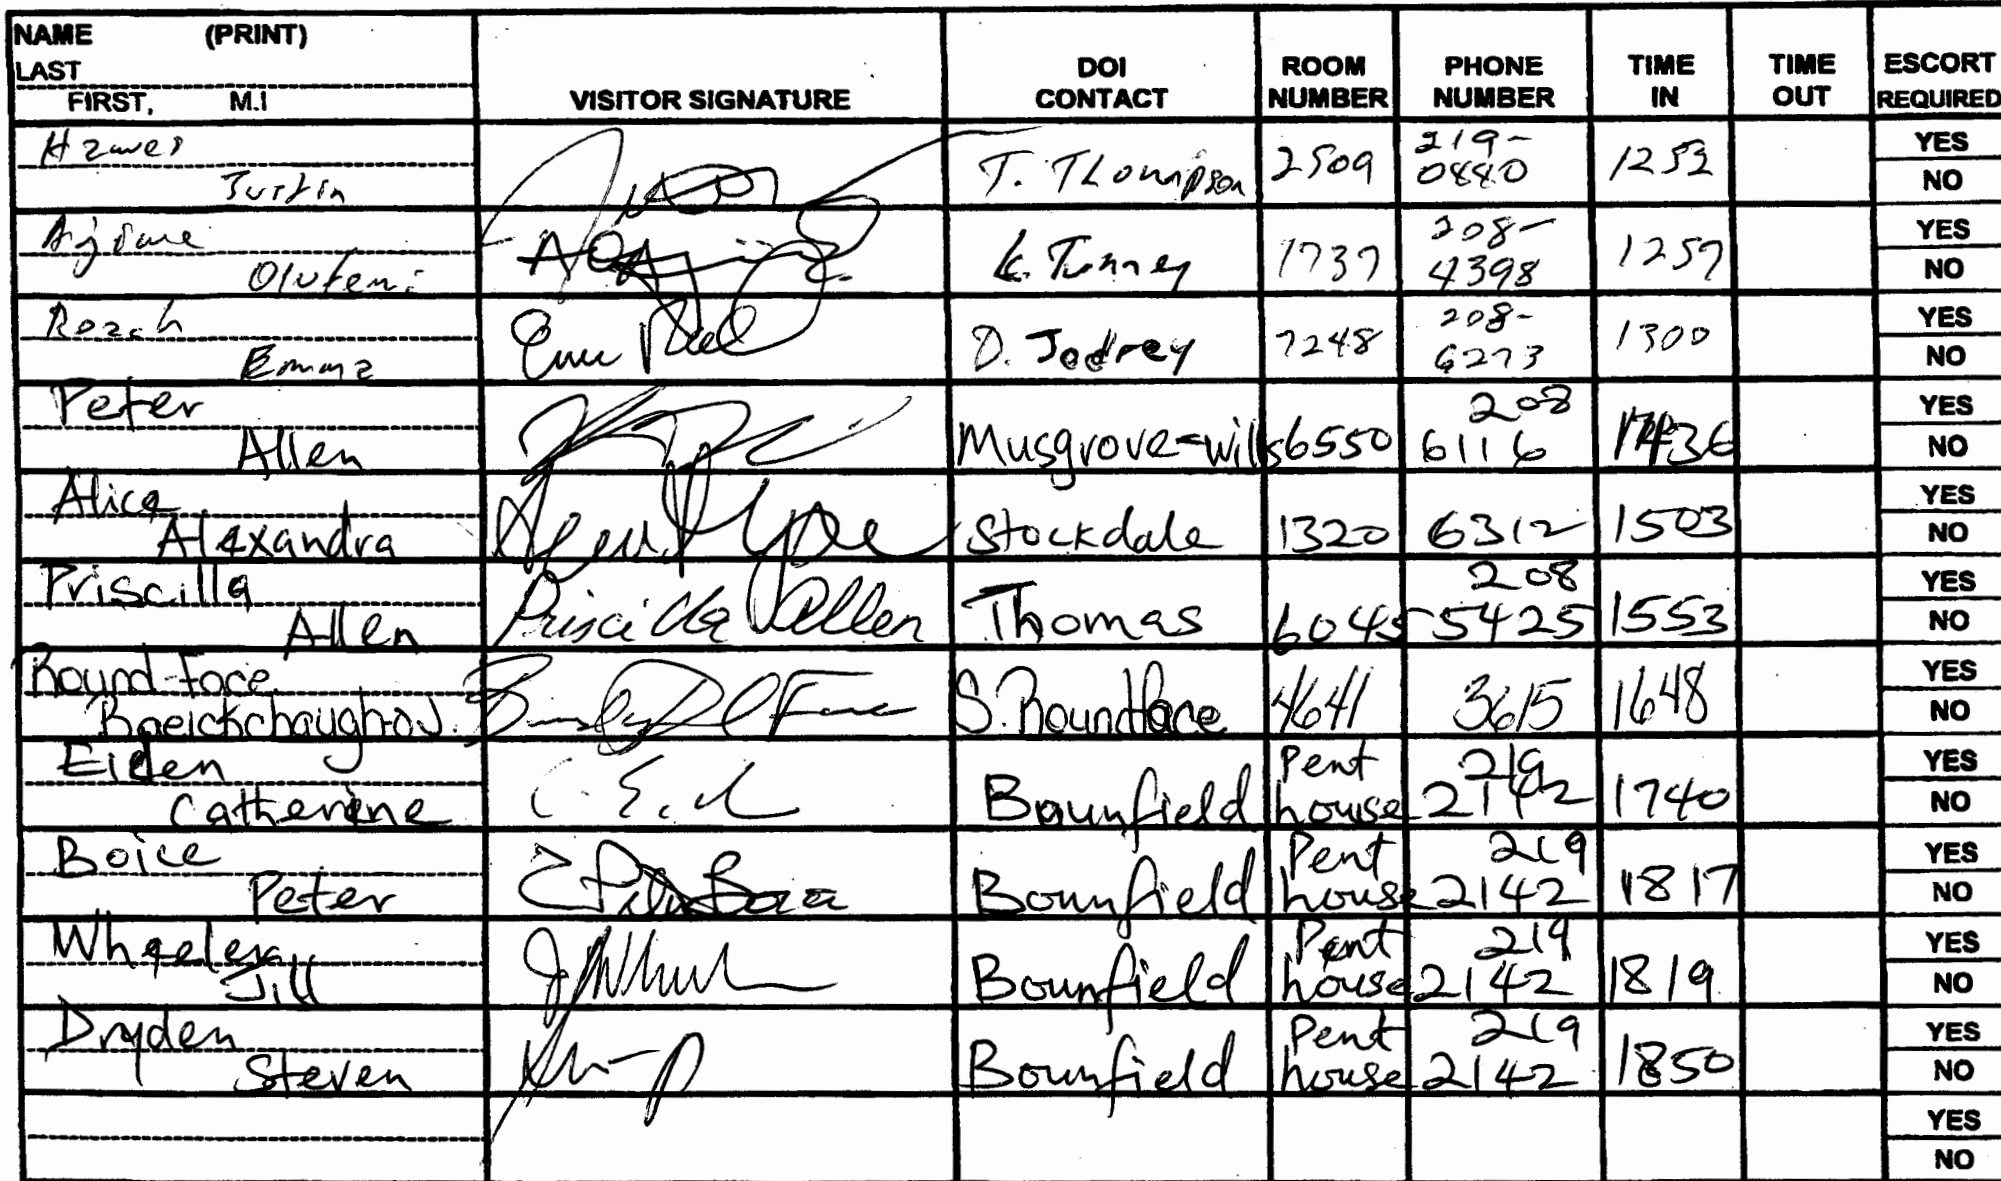 NAME (PRINT)
LAST
FIRST, M.I
VISITOR SIGNATURE
DOI
CONTACT
ROOM
NUMBER
PHONE
NUMBER
TIME
IN
TIME
OUT
ESCORT
REQUIRED
Hawes
Justin
T. Thompson
2509
219-
0880
1253
YES
NO
Olufemi
K. Tunney
1737
208-
4398
1257
YES
NO
Roach
Emma
D. Jodrey
7248
208-
6273
1300
YES
NO
Peter
Allen
Musgrove-wills
6550
208
6116
1436
YES
NO
Alice
Alexandra
Stockdale
1320
6312
1503
YES
NO
Priscilla
Allen
Priscilla Allen
Thomas
6045
208
5425
1553
YES
NO
Round-face
S. Roundface
4641
3615
1648
YES
NO
Eiden
Catherine
Bounfield
Pent
house
219
2142
1740
YES
NO
Boice
Peter
Bounfield
Pent
house
219
2142
1817
YES
NO
Wheeler
Jill
Bounfield
Pent
house
219
2142
1819
YES
NO
Dryden
Steven
Bounfield
Pent
house
219
2142
1850
YES
NO
YES
NO